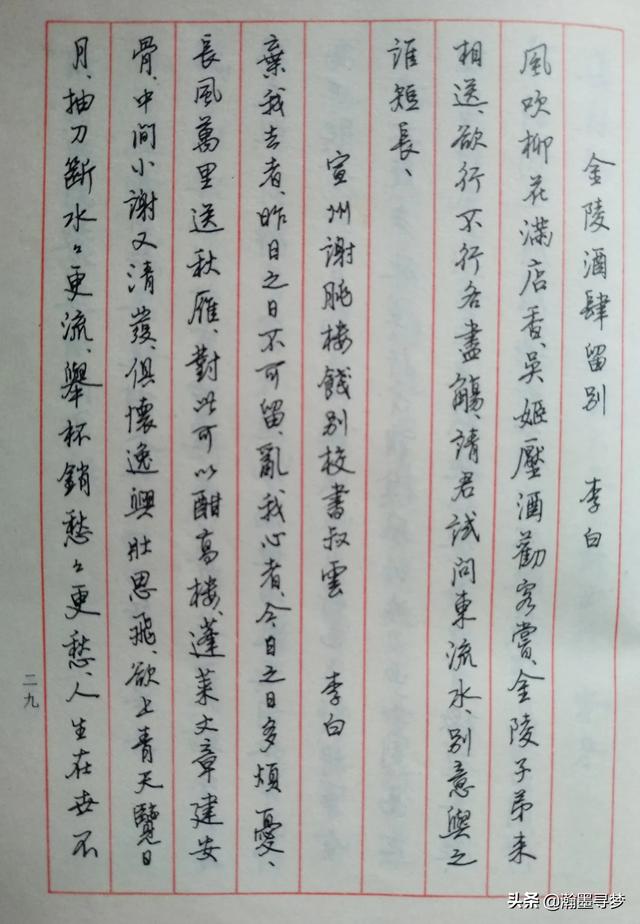 金陵酒肆留別 李白
風吹柳花滿店香、吳姬壓酒勸客嘗、金陵子弟来
相送、欲行不行各盡觴、請君試问東流水、别意與之
誰短長、
宣州謝朓樓餞别校書叔雲 李白
棄我去者、昨日之日不可留、亂我心者、今日之日多煩憂、
長風萬里送秋雁、對此可以酣高楼、蓬萊文章建安
骨、中间小謝又清發、俱懷逸興壯思飛、欲上青天覽日
月、抽刀斷水々更流、舉杯銷愁々更愁、人生在世不
二九
头条 @瀚墨寻梦